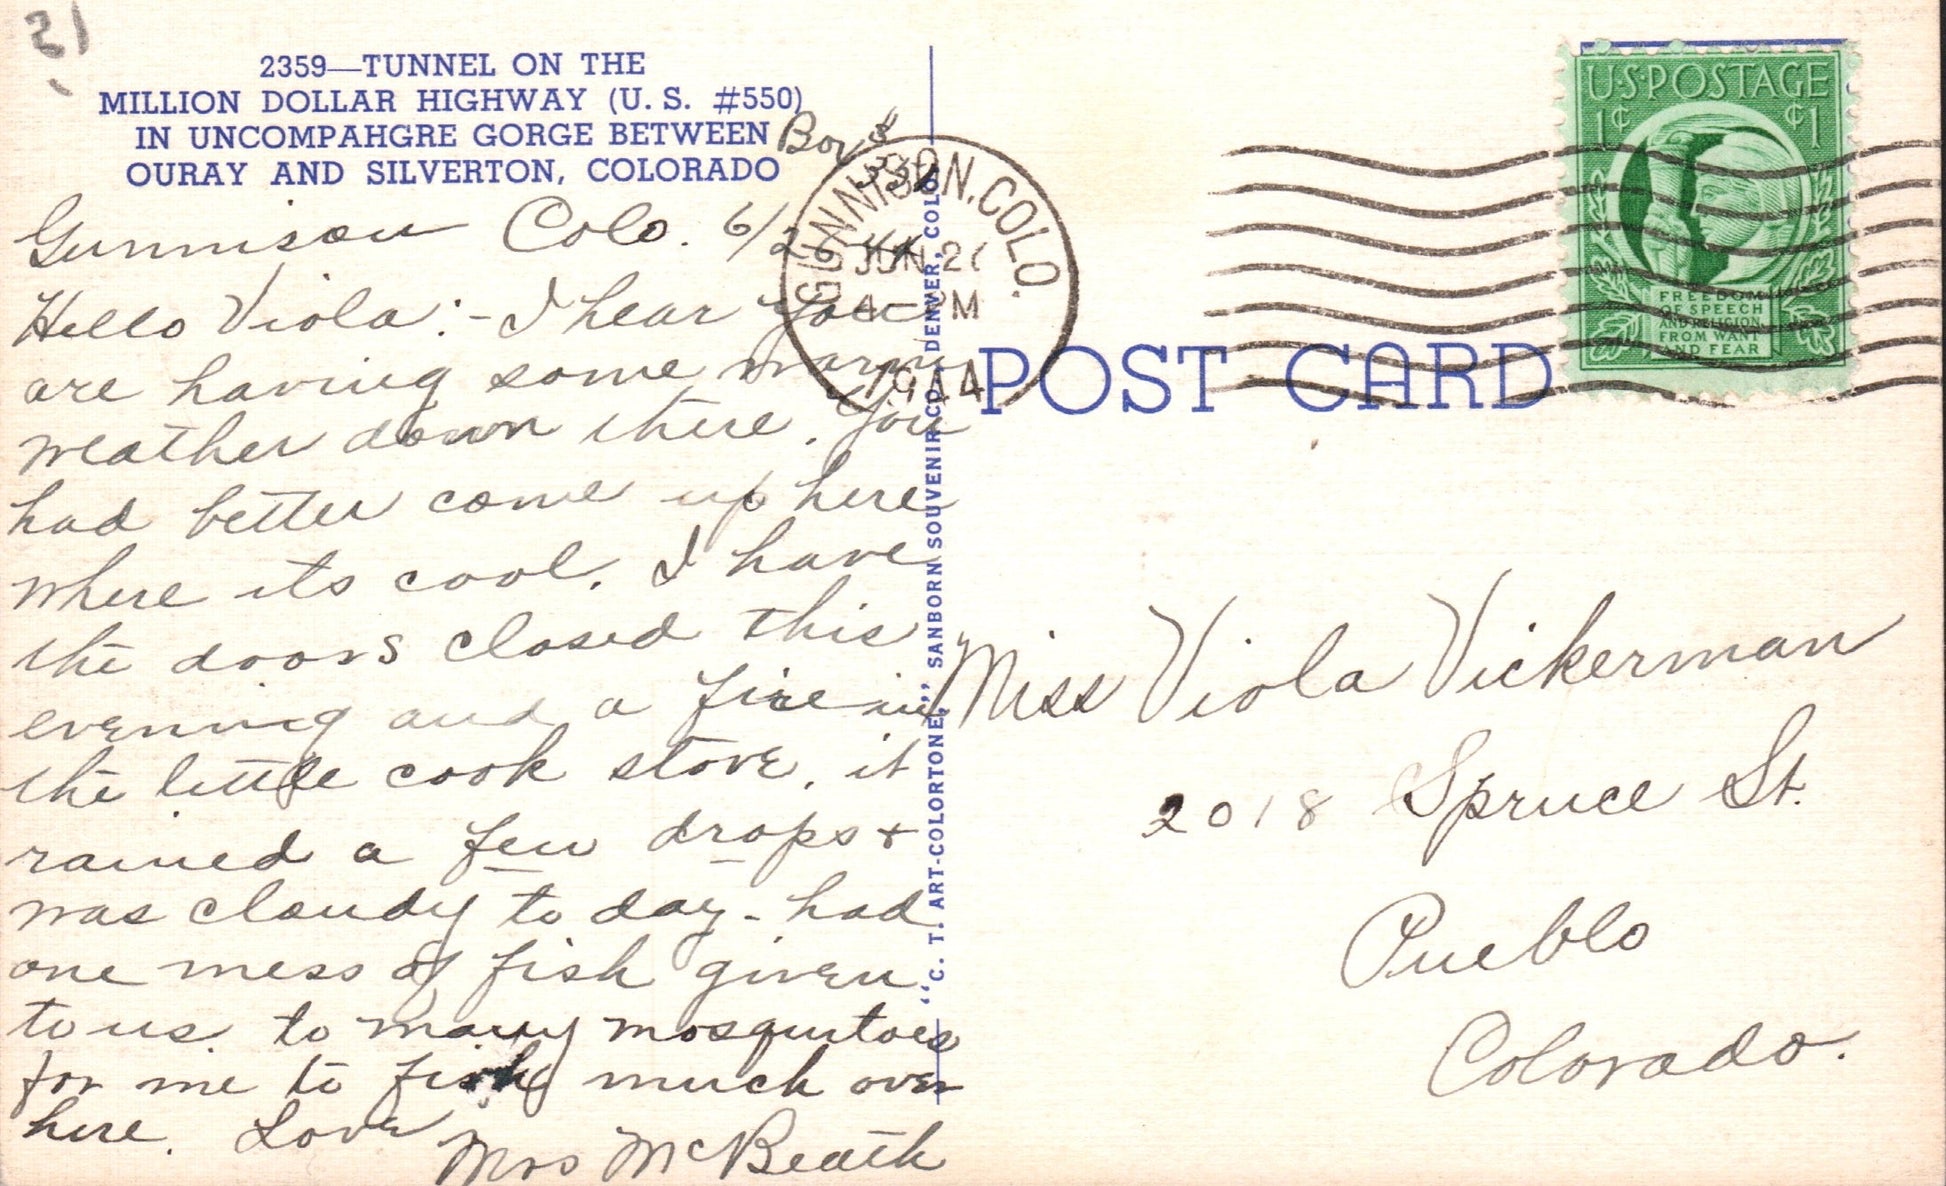 21
2359—TUNNEL ON THE
MILLION DOLLAR HIGHWAY (U. S. #550)
IN UNCOMPAHGRE GORGE BETWEEN
OURAY AND SILVERTON, COLORADO
Box
332
Gunnison Colo. 6/26
Hello Viola:- I hear you
are having some warm
weather down there. You
had better come up here
where its cool. I have
the doors closed this
evening and a fire in
the little cook stove. it
rained a few drops +
was cloudy to day - had
one mess of fish given
to us. to many mosquitoes
for me to fish much over
here. Love
Mrs McBeath
"C. T. ART-COLORTONE," SANBORN SOUVENIR CO., DENVER, COLO.
GUNNISON, COLO.
JUN 2
4- PM
1944
POST CARD
U·S·POSTAGE
1¢ ¢1
FREEDOM
OF SPEECH
AND RELIGION,
FROM WANT
AND FEAR
Miss Viola Vickerman
2018 Spruce St.
Pueblo
Colorado.